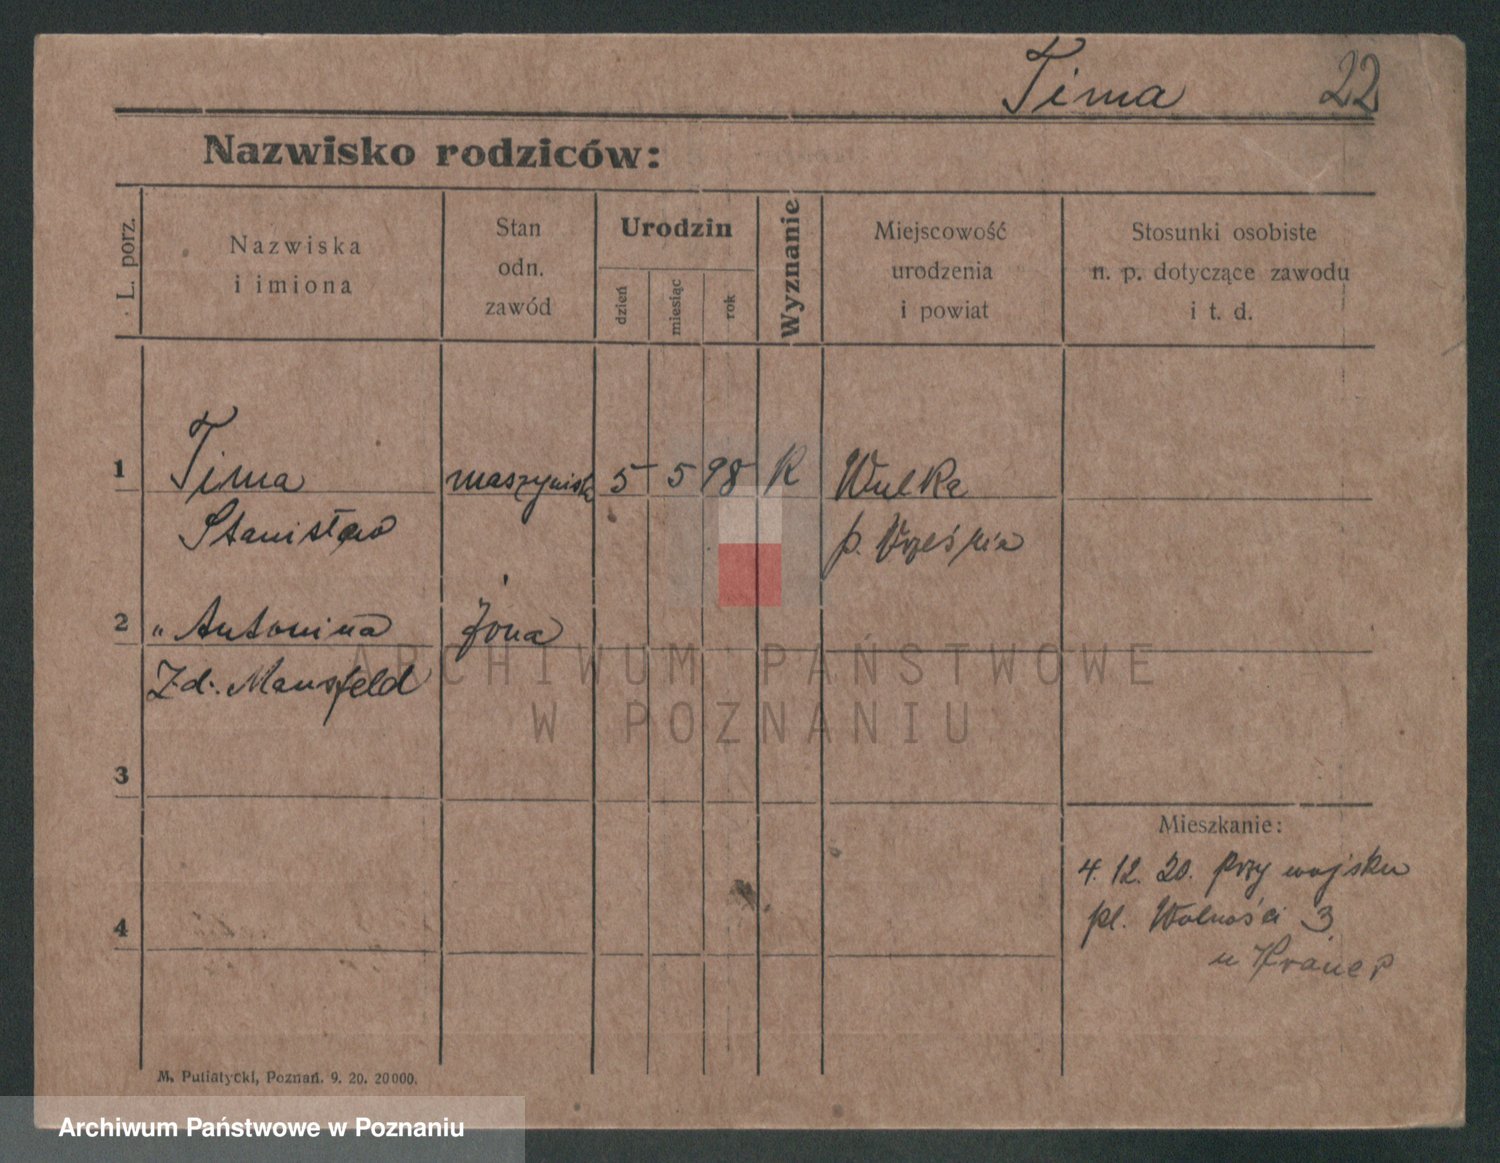 Tima 22
Nazwisko rodziców:
L. porz.
Nazwiska
i imiona
Stan
odn.
zawód
Urodzin
dzień
miesiąc
rok
Wyznanie
Miejscowość
urodzenia
i powiat
Stosunki osobiste
n. p. dotyczące zawodu
i t. d.
1 Tima maszynista 5 5 98 K Wulka
Stanisław p.
2 „ Antonina żona
Zd. Mansfeld
3
4
Mieszkanie:
4. 12. 20. przy wojsku
pl. Wolności 3
u
M. Putiatycki, Poznań. 9. 20. 20000.
ARCHIWUM PAŃSTWOWE
W POZNANIU
Archiwum Państwowe w Poznaniu